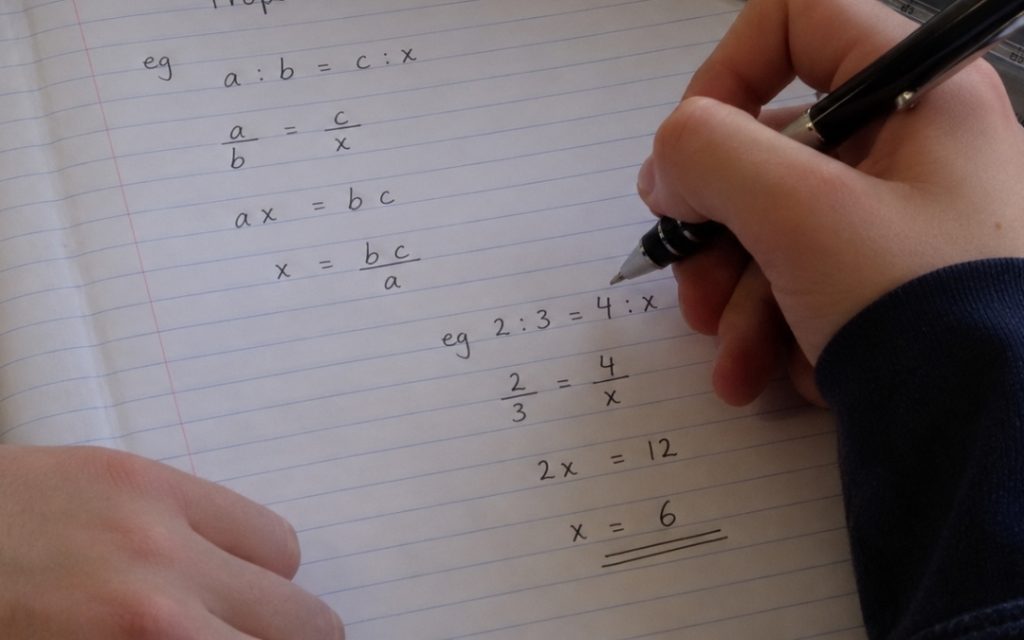 eg a : b = c : x
a/b = c/x
ax = bc
x = bc/a
eg 2 : 3 = 4 : x
2/3 = 4/x
2x = 12
x = 6